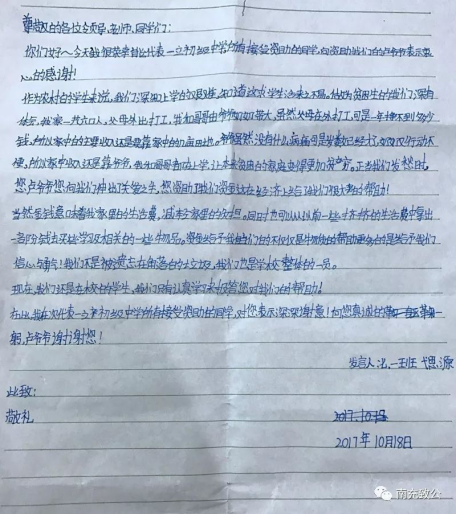 尊敬的各位领导,老师,同学们:
你们好~今天我很荣幸首次代表一立初级中学所有接受资助的同学,向资助我们的卢爷爷表示衷
心的感谢!
作为农村的学生来说,我们深知上学的艰难,知道读中学生活来之不易。作为贫困生的我们深有
体会,我家一共六口人,父母外出打工,我和哥哥由爷爷奶奶带大,虽然父母在外打工可是一年挣不到多少
钱,所以家中的主要收入还是靠家中的几亩田地。爷爷虽然没有什么病痛可是岁数已经大了,奶奶又行动不
便,所以家中收入还是靠爷爷,我和哥哥都上学,让本来贫困的家庭变得更加
您卢爷爷您向我们伸出了关爱之手,您资助了我们资金让在经济上给了我们很大的帮助!
当然金钱意味着我家里的生活费,减轻家里的负担。同时也可以从以前一些才怀的生活费中拿出
一部分钱去买些学习相关的一些物品。资金给予我们的不仅仅是物质的帮助更多的是给予我们
信心与勇气!我们不是被遗忘在角落的垃圾,我们也是学校整体的一员。
现在,我们还是在校的学生,我们只有认真学习来报答您对我们的帮助!
在此我在次代表一立初级中学所有接受资助的同学,对您表示深深谢意!向您真诚的
躬,卢爷爷谢谢您!
发言人:七.一班 弋思源
此致:
敬礼
2017.10.18
2017年10月18日
南充教公